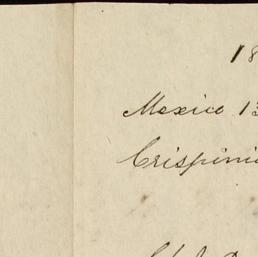 18
Mexico 13
Crispini